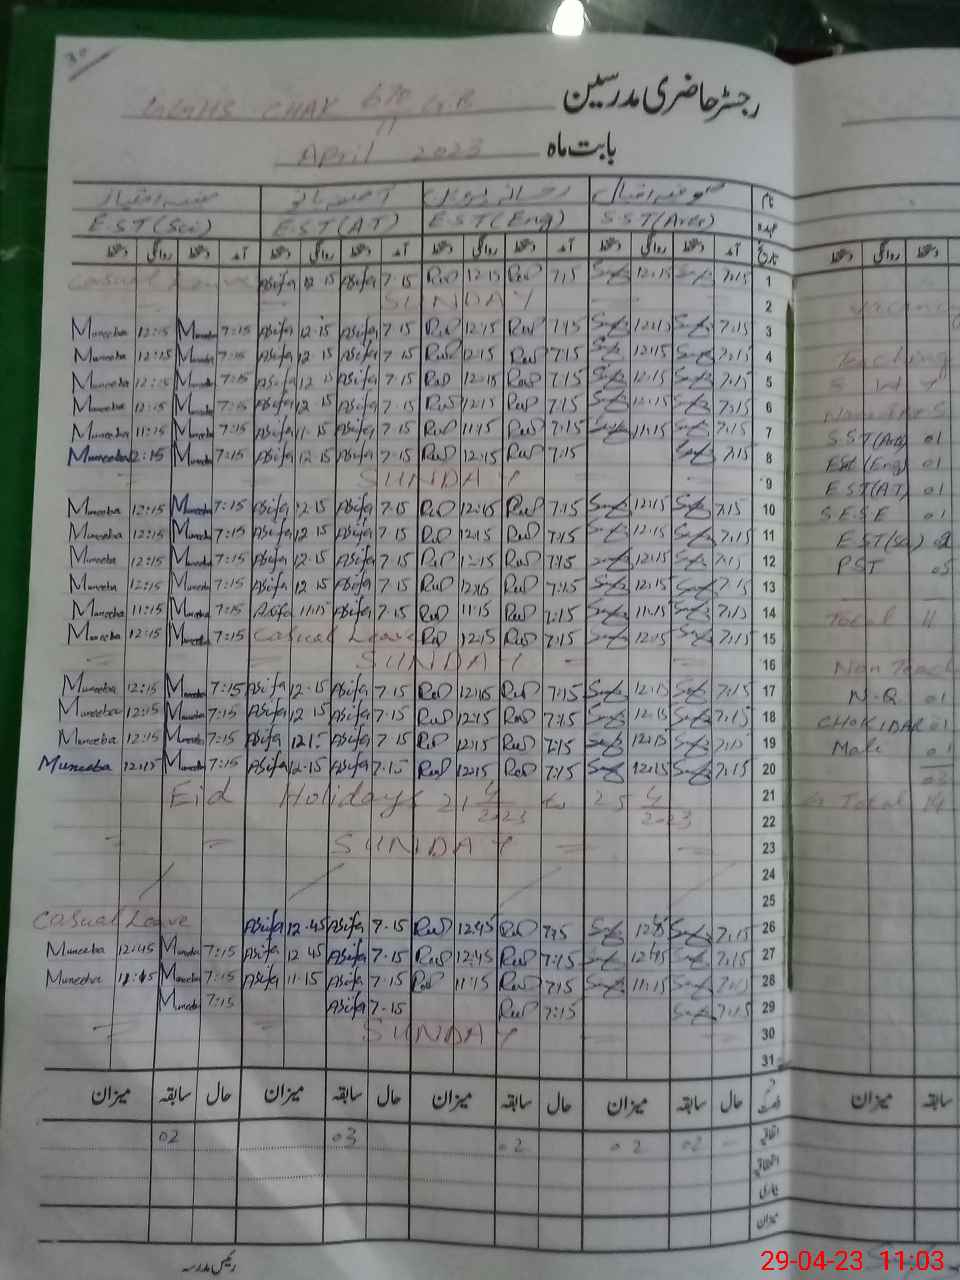 رجسٹر حاضری مدرسین
CHAK G.B
بابت ماہ April 2023
نام
عہدہ E.ST(Sci) E.ST(AT) E.ST(Eng) S.ST(Arts)
تاریخ آمد دستخط روانگی دستخط آمد دستخط روانگی دستخط آمد دستخط روانگی دستخط آمد دستخط روانگی دستخط
Casual Leave Asifa 12-15 Asifa 7-15 12:15 7:15 12:15 7:15 1
SUNDAY 2
Muneeba 12:15 Muneeba 7:15 Asifa 12-15 Asifa 7-15 12:15 7:15 12:15 7:15 3
Muneeba 12:15 Muneeba 7:15 Asifa 12-15 Asifa 7-15 12:15 7:15 12:15 7:15 4
Muneeba 12:15 Muneeba 7:15 Asifa 12-15 Asifa 7-15 12:15 7:15 12:15 7:15 5
Muneeba 12:15 Muneeba 7:15 Asifa 12-15 Asifa 7-15 12:15 7:15 12:15 7:15 6
Muneeba 11:15 Muneeba 7:15 Asifa 11-15 Asifa 7-15 11:15 7:15 11:15 7:15 7
Muneeba 12:15 Muneeba 7:15 Asifa 12-15 Asifa 7-15 12:15 7:15 7:15 8
SUNDAY 9
Muneeba 12:15 Muneeba 7:15 Asifa 12-15 Asifa 7-15 12:15 7:15 12:15 7:15 10
Muneeba 12:15 Muneeba 7:15 Asifa 12-15 Asifa 7-15 12:15 7:15 12:15 7:15 11
Muneeba 12:15 Muneeba 7:15 Asifa 12-15 Asifa 7-15 12:15 7:15 12:15 7:15 12
Muneeba 12:15 Muneeba 7:15 Asifa 12-15 Asifa 7-15 12:15 7:15 12:15 7:15 13
Muneeba 11:15 Muneeba 7:15 Asifa 11:15 Asifa 7-15 11:15 7:15 11:15 7:15 14
Muneeba 12:15 Muneeba 7:15 Casual Leave 12:15 7:15 12:15 7:15 15
SUNDAY 16
Muneeba 12:15 Muneeba 7:15 Asifa 12-15 Asifa 7-15 12:15 7:15 12:15 7:15 17
Muneeba 12:15 Muneeba 7:15 Asifa 12-15 Asifa 7-15 12:15 7:15 12:15 7:15 18
Muneeba 12:15 Muneeba 7:15 Asifa 12:15 Asifa 7-15 12:15 7:15 12:15 7:15 19
Muneeba 12:15 Muneeba 7:15 Asifa 12-15 Asifa 7-15 12:15 7:15 12:15 7:15 20
Eid Holidays 21 4/2023 to 25 4/2023 21
22
SUNDAY 23
24
25
Casual Leave Asifa 12-45 Asifa 7-15 12:45 7:15 12:45 7:15 26
Muneeba 12:45 Muneeba 7:15 Asifa 12 45 Asifa 7-15 12:45 7:15 12:45 7:15 27
Muneeba 11:15 Muneeba 7:15 Asifa 11-15 Asifa 7-15 11:15 7:15 11:15 7:15 28
Muneeba 7:15 Asifa 7-15 7:15 7:15 29
SUNDAY 30
31
حال سابقہ میزان حال سابقہ میزان حال سابقہ میزان حال سابقہ میزان
02 03 02 02 02 اتفاقیہ
بیماری
میزان
رئیس مدرسہ
دستخط روانگی دستخط
Vacancy
Teaching
S.ST(Arts) 01
EST(Eng) 01
E.ST(AT) 01
S.E.S.E 01
EST(Sci)
PST 05
Total 11
Non Teach
N-Q 01
CHOKIDAR 01
Mali 01
03
G Total 14
میزان سابقہ
29-04-23 11:03